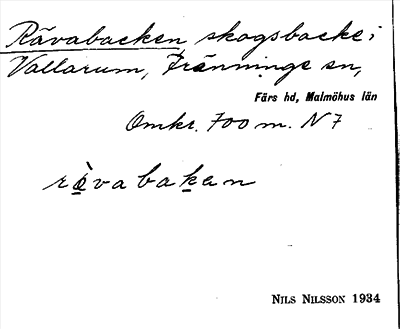 Rävabacken, skogsbacke i
Vallarum, Fränninge sn,
Färs hd, Malmöhus län
Omkr. 700 m. N 7
rävabakan
NILS NILSSON 1934